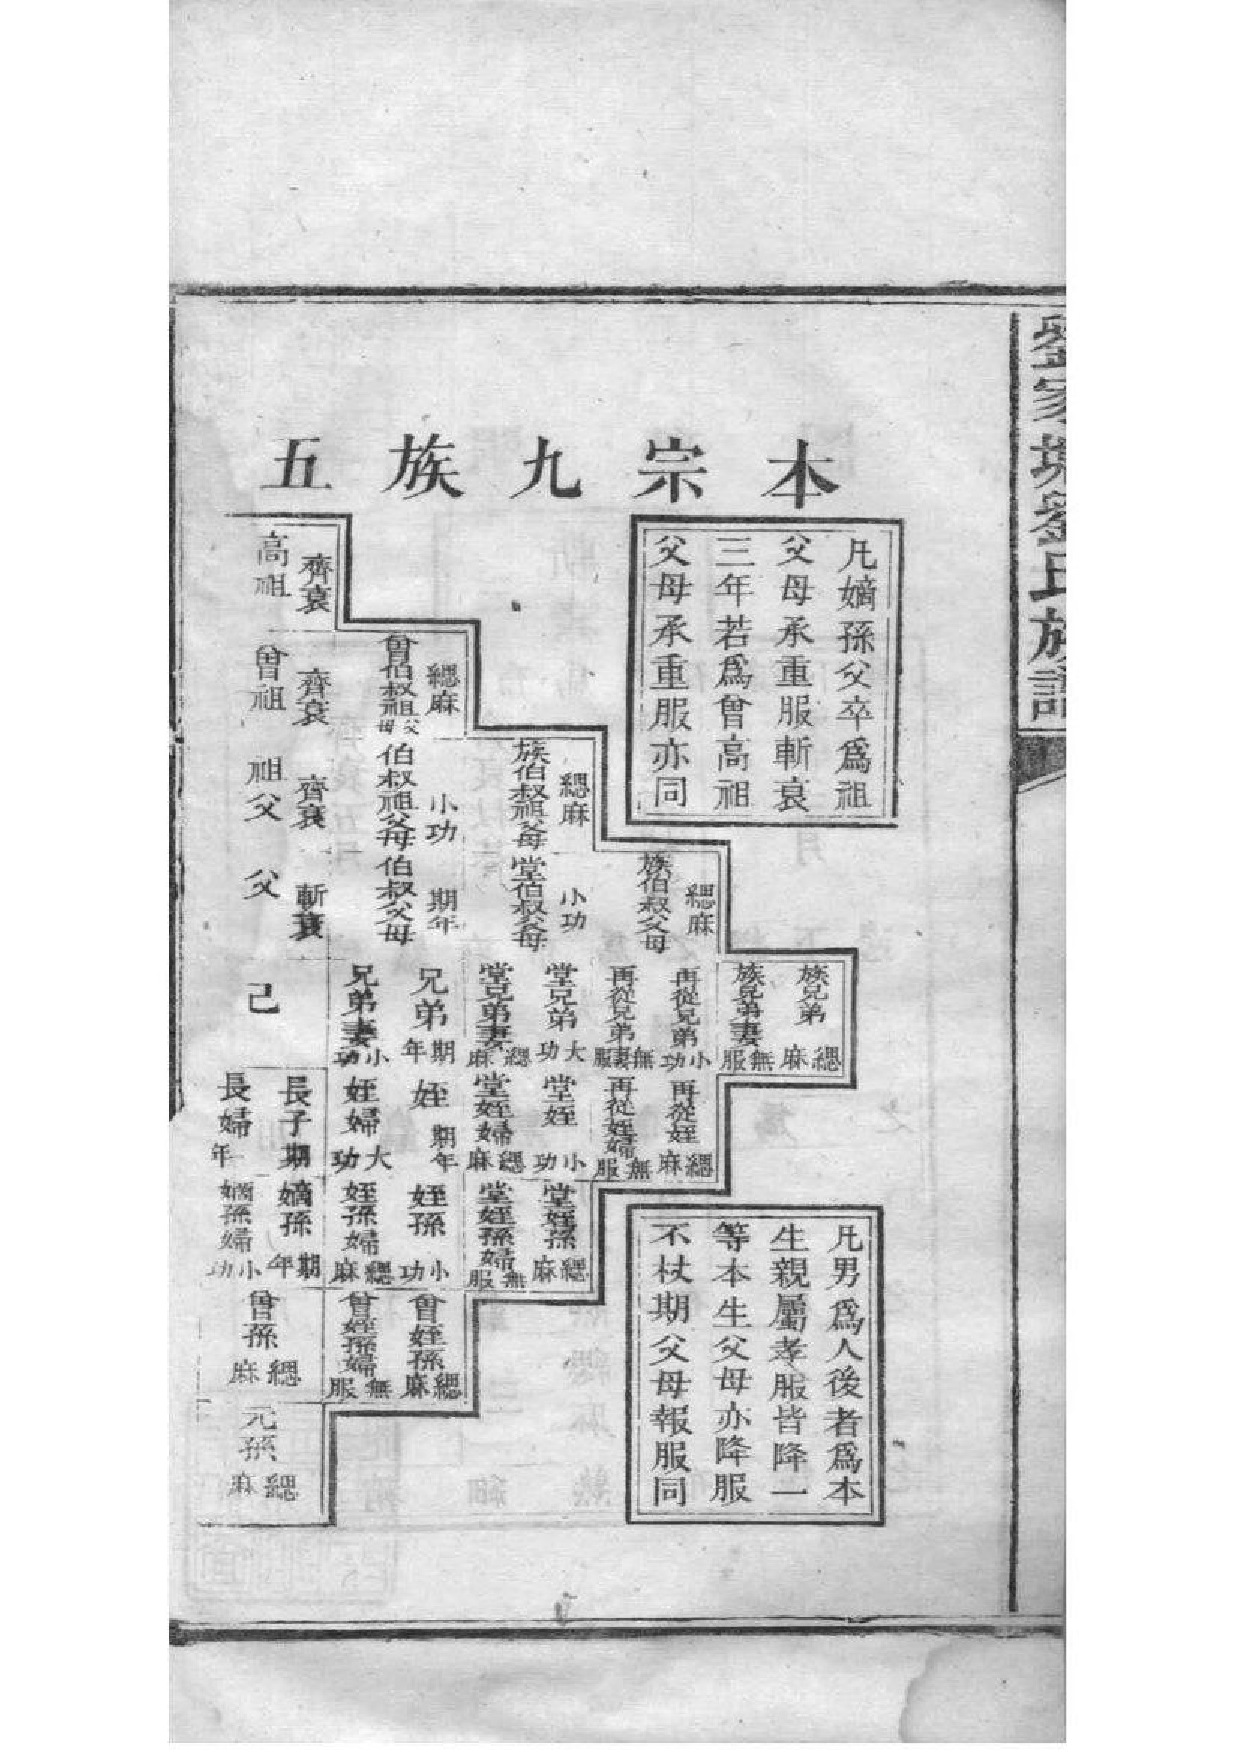 劉家塅劉氏族譜
本宗九族五
凡嫡孫父卒爲祖
父母承重服斬衰
三年若爲曾高祖
父母承重服亦同
齊衰
高祖
緦麻
曾伯叔祖父母
齊衰
曾祖
緦麻
族伯叔祖父母
小功
伯叔祖父母
齊衰
祖父
緦麻
族伯叔父母
小功
堂伯叔父母
期年
伯叔父母
斬衰
父
族兄弟
緦麻
族兄弟妻
無服
再從兄弟
小功
再從兄弟妻
無服
堂兄弟
大功
堂兄弟妻
緦麻
兄弟
期年
兄弟妻
小功
己
再從姪
緦麻
再從姪婦
無服
堂姪
小功
堂姪婦
緦麻
姪
期年
姪婦
大功
長子
期
長婦
年
堂姪孫
緦麻
堂姪孫婦
無服
姪孫
小功
姪孫婦
緦麻
嫡孫
期年
嫡孫婦
小功
曾姪孫
緦麻
曾姪孫婦
無服
曾孫
緦麻
元孫
緦麻
凡男爲人後者爲本
生親屬孝服皆降一
等本生父母亦降服
不杖期父母報服同